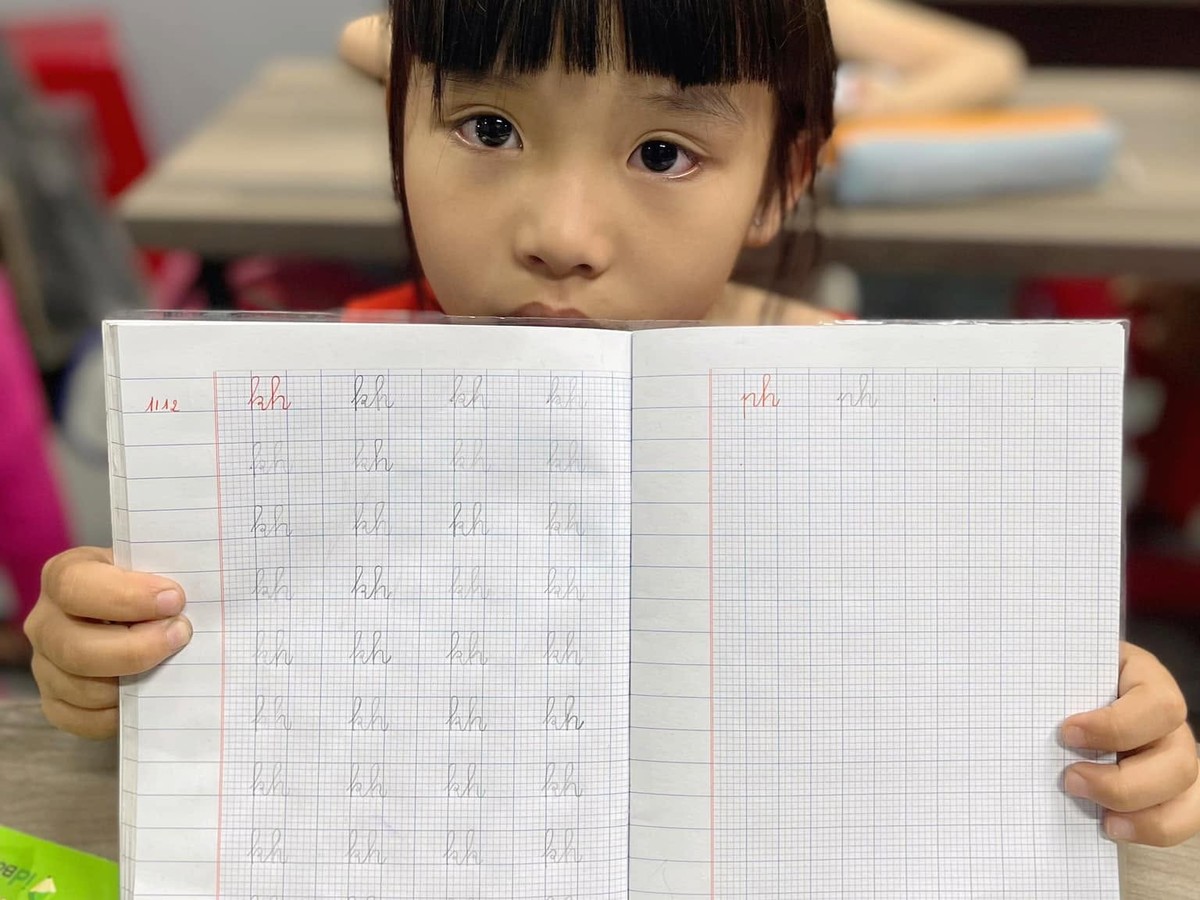 1112 kh kh kh kh
kh kh kh kh
kh kh kh kh
kh kh kh kh
kh kh kh kh
kh kh kh kh
kh kh kh kh
kh kh kh kh
nh nh